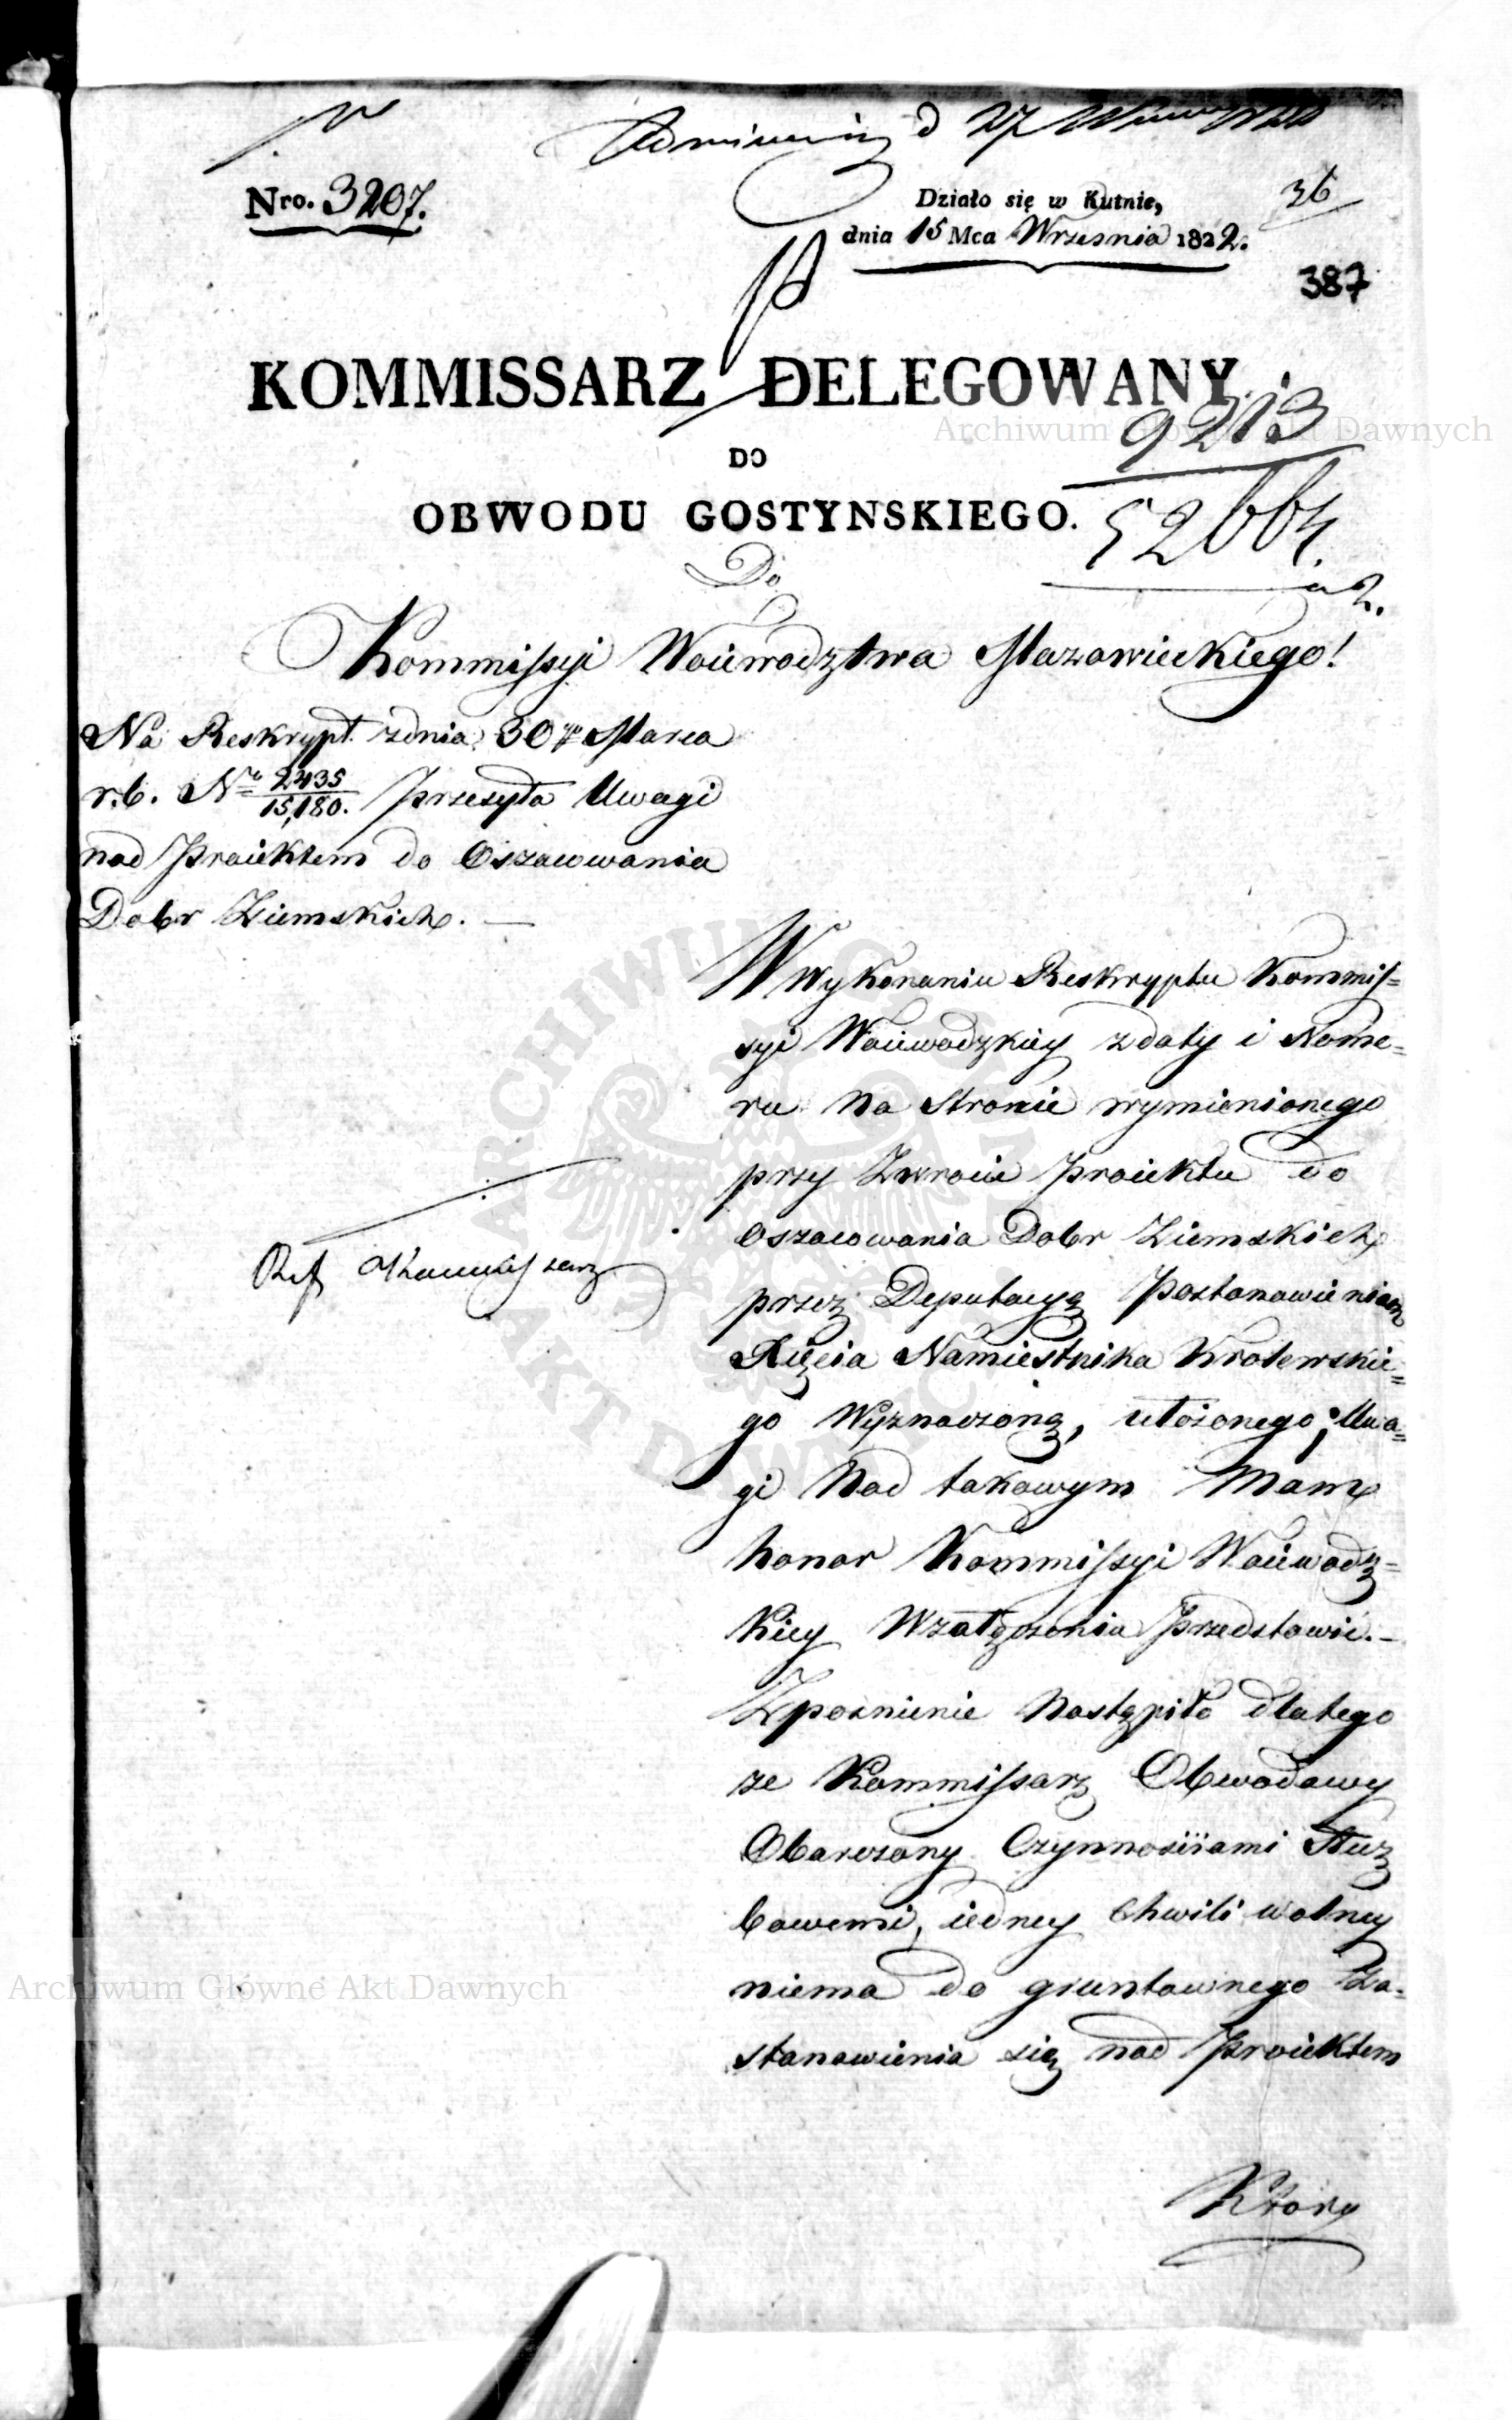 d 27
Nro. 3207.
Działo się w Kutnie,
36
dnia 15 Mca Wrzesnia 1822.
387
KOMMISSARZ DELEGOWANY
9213
DO
52664
OBWODU GOSTYNSKIEGO.
Do
Kommissyi Woiewodztwa Mazowieckiego!
Na Reskrypt zdnia 30go Marca
r.b. No 2435/15,180. przesyła Uwagi
nad Proiektem do Oszacowania
Dobr Ziemskich. —
W wykonaniu Reskryptu Kommis=
syi Woiewodzkiey zdaty i Nome=
ru na Stronie wymienionego
przy Zwrocie Proiektu do
Oszacowania Dobr Ziemskich
przez Deputacyą Postanowieniem
Xięcia Namiestnika Krolewskie=
go Wyznaczoną, ułożonego; Uwa=
gi Nad takowym Mam
honor Kommissyi Woiewodz=
kiey Wzałączeniu Przedstawić. —
Zpoznienie Nastąpiło dlatego
ze Kommissarz Obwodowy
Obarczony Czynnosciami Słuz
bowemi, iedney Chwili wolney
niema do gruntownego Za=
stanowienia się nad Proiektem
Ktory
Archiwum Główne Akt Dawnych
Archiwum Główne Akt Dawnych
ARCHIWUM GŁÓWNE AKT DAWNYCH